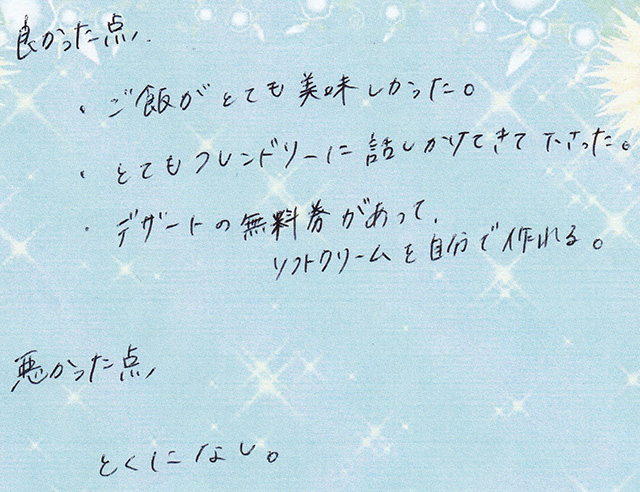 良かった点、
・ご飯がとても美味しかった。
・とてもフレンドリーに話しかけてきて下さった。
・デザートの無料券があって、
ソフトクリームを自分で作れる。
悪かった点、
とくになし。